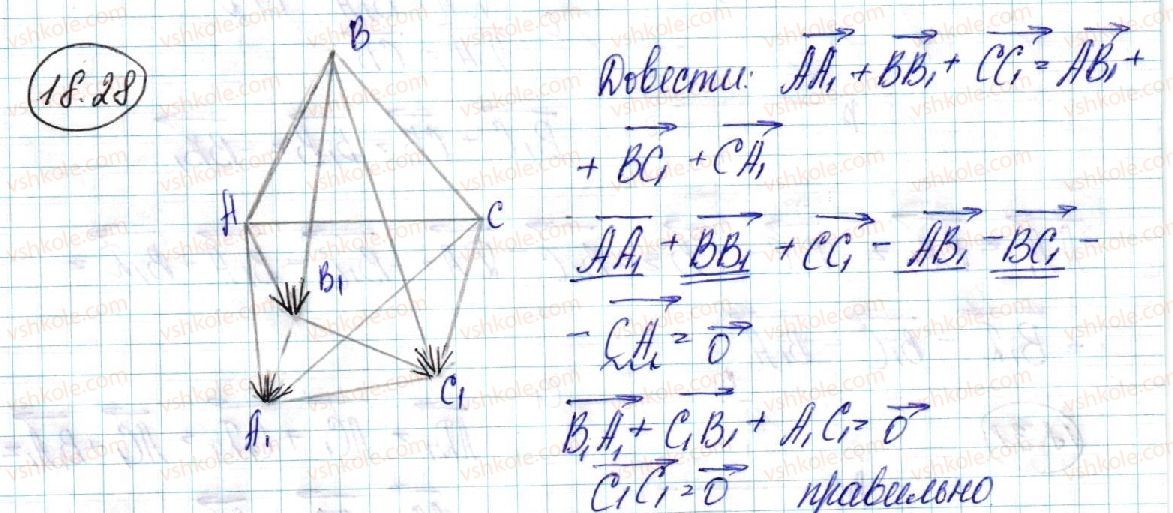 18.28
B
A
C
B₁
C₁
A₁
Довести: AA₁ + BB₁ + CC₁ = AB₁ +
+ BC₁ + CA₁
AA₁ + BB₁ + CC₁ - AB₁ - BC₁ -
- CA₁ = 0
B₁A₁ + C₁B₁ + A₁C₁ = 0
C₁C₁ = 0 правильно
vshkole.com